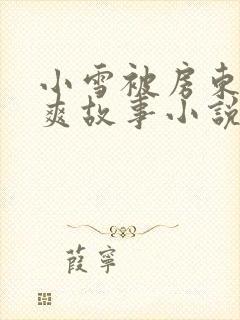 小雪被房东
爽故事小說
葭寧